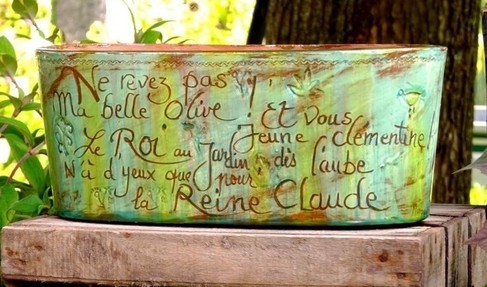 Ne rêvez pas,
Ma belle Olive ! Et vous
Jeune clémentine,
Le Roi au Jardin dès l'aube
N'a d'yeux que pour
la Reine Claude